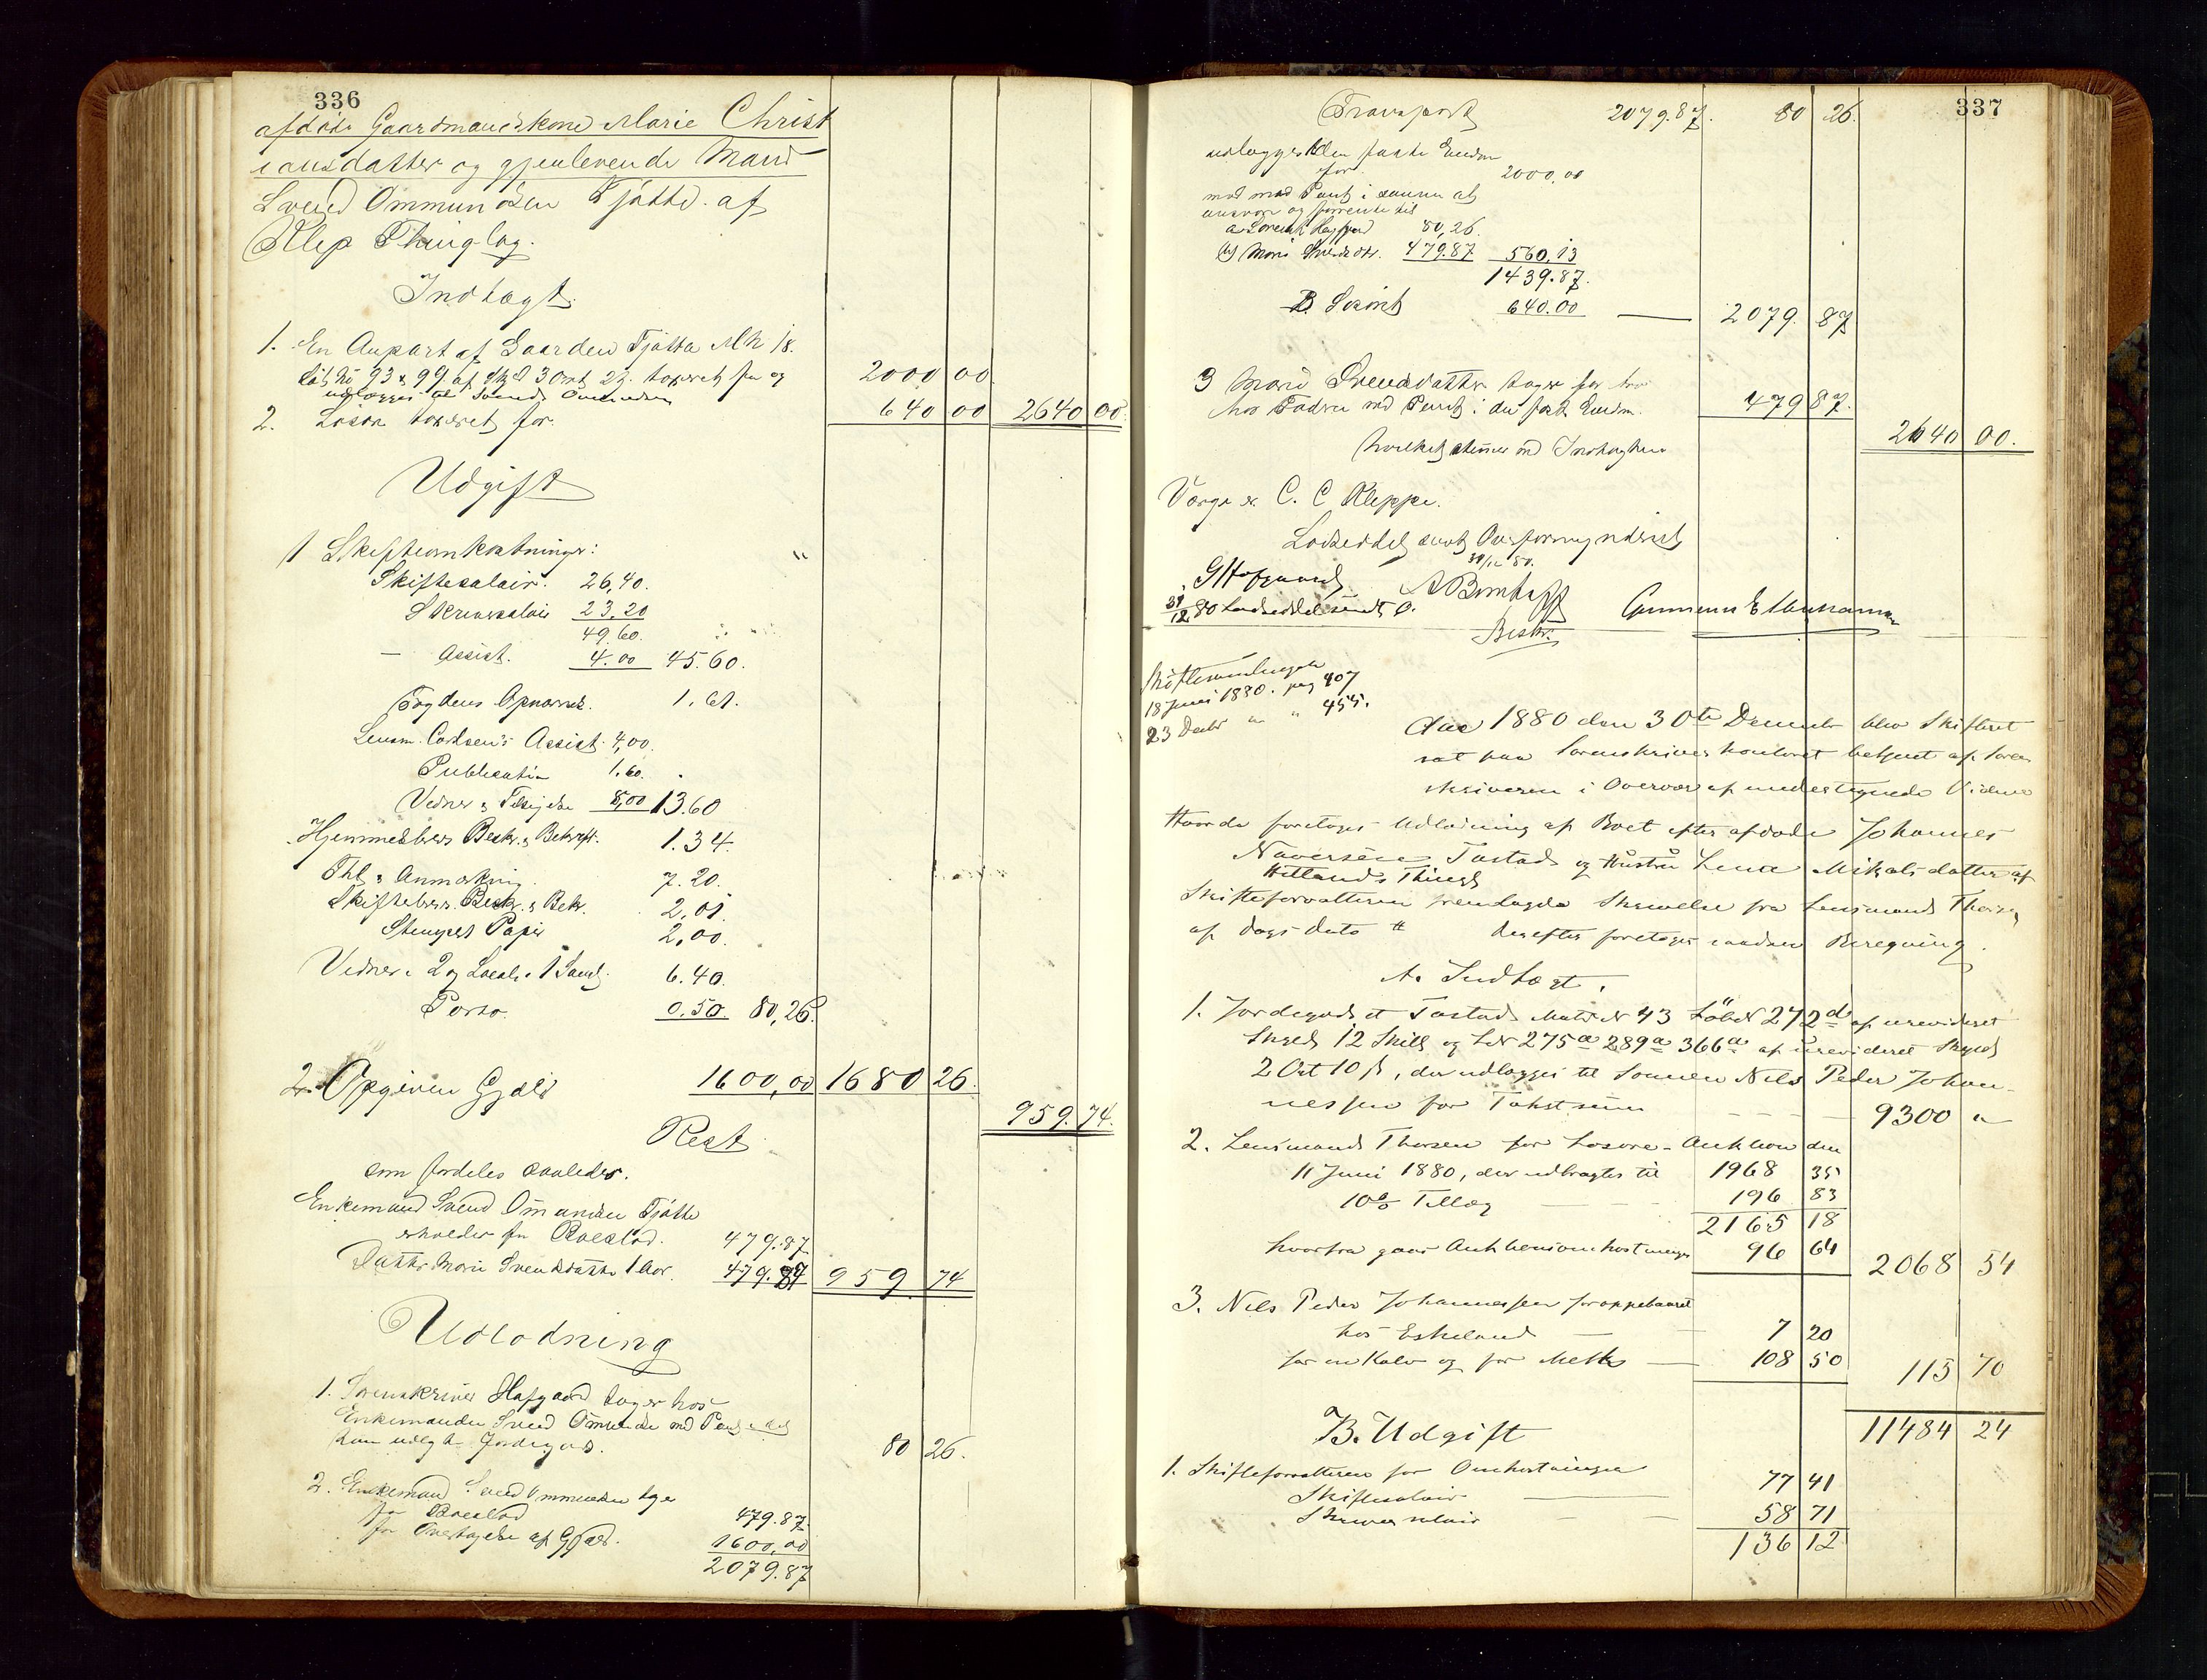 336
afdöde Gaardmandskone Marie Christ
iansdatter og gjenlevende Mand
Svend Ommundsen Tjötte af
Klep Thinglag.
Indtægt.
1. En Anpart af Gaarden Tjötta M N 18.
Löb No 93 & 99 af Skyld 3 Ort 23. taxeret for og
udlægges til Svend Ommundsen 2000 00
2. Lösöre taxeret for. 640 00 2640 00
Udgift
1 Skifteomkostninger: "
Skiftesalair. 26,40.
Skriversalair 23,20
49,60.
— Assist. 4.00 45.60.
Fogdens Opnævnelse. 1,61.
Lensm. Carlsen's Assist. 4,00.
Publication 1,60.
Vidner & Tilsigelse 8,00 13.60
Hjemmelsbrev Besk. & Bekræft. 1.34.
Thl. & Anmærkning. 7.20.
Skiftebrev. Besk. & Bekr. 2,01.
Stemplet Papir 2,00.
Vidner 2 og Locale 1 Saml. 6.40.
Porto. 0,50 80,26.
2. Opgiven Gjæld 1600,00 1680 26.
Rest 959.74.
som fordeles saaledes.
Enkemand Svend Ommundsen Tjötte
erholder for Boeslod. 479.87
Datter Marie Svendsdatter 1 Aar. 479.87 959 74
Udlodning
1. Sorenskriver Hofgaard tager hos
Enkemanden Svend Ommundsen med Pant i det
ham udlagte Jordegods. 80 26.
2. Enkemand Svend Ommundsen tager
for Boeslod 479.87.
for Overtagelse af Gjæld. 1600,00
2079.87
337
Transport 2079.87. 80 26.
udlægges A den faste Eiendom
for 2000,00
mod med Pant i samme at
ansvare og forrente til
a Sorensk. Hofgaard 80,26.
b) Marie Svendsdtr. 479.87 560,13
1439.87.
B. Lösöret 640.00 — 2079. 87
3 Marie Svendsdatter tager for Arv
hos Faderen med Pant i den faste Eiendom. 479 87.
2640 00.
hvilket stemmer med Indtægten
Værge er C. C Kleppe.
Lodseddel sendt Overformynderiet
30/12 80.
G Hofgaard.
31/12 80 Lodseddel sendt O.
Beskr.
Skiftesamlinger
18 Juni 1880. pag 407
23 Decbr " " 455.
Aar 1880 den 30te December blev Skifteret
sat paa Sorenskriverkontoret betjent af Soren
skriveren i Overvær af undertegnede Vidner
Hvorda foretoges Udlodning af Boet efter afdöde Johannes
Naversen Tastad og Hustru Lena Mikalsdatter af
Hetlands Thingl
Skifteforvalteren fremlagde Skrivelse fra Lensmand Thorsen
af Dags Dato # derefter foretoges saadan Beregning.
A. Indtægt.
1. Jordegods et Tastad Matr N 43 Löb N 272d af urevideret
Skyld 12 Skill og L N 275a 289a 366a af urevideret Skyld
2 Ort 10 ß, der udlægges til Sönnen Nils Peder Johan-
nessen for Takstsum — 9300 "
2. Lensmand Thorsen for Lösöre-Auktion den
11 Juni 1880, der udbragtes til 1968 35
10% Tillæg 196 83
2165 18
hvorfra gaar Auktionsomkostninger 96 64 2068 54
3. Nils Peder Johannessen for oppebaaret
hos Eskeland — 7 20
for en Kalv og for Melk — 108 50 115 70
11484 24
B. Udgift
1. Skifteforvalteren for Omkostninger
Skiftesalair — 77 41
Skriversalair — 58 71
136 12